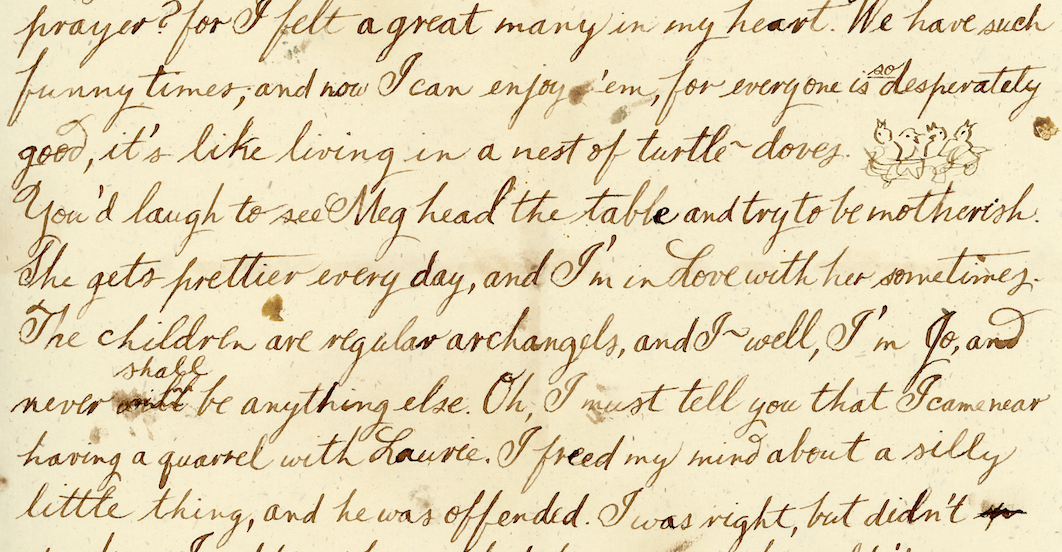 prayer? for I felt a great many in my heart. We have such
funny times; and now I can enjoy 'em, for everyone is so desperately
good, it's like living in a nest of turtle-doves.
You'd laugh to see Meg head the table and try to be motherish.
She gets prettier every day, and I'm in love with her sometimes.
The children are regular archangels, and I- well, I'm Jo, and
never shall be anything else. Oh, I must tell you that I came near
having a quarrel with Laurie. I freed my mind about a silly
little thing, and he was offended. I was right, but didn't